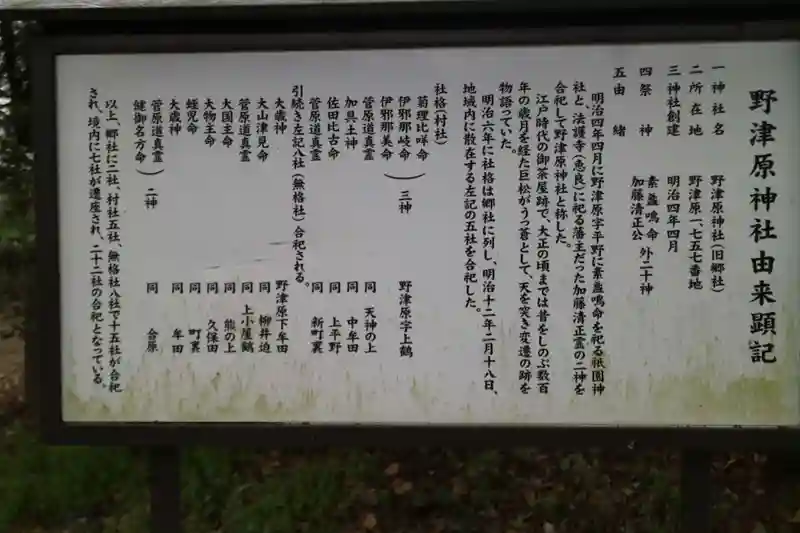 野津原神社由来顕記
一 神社名 野津原神社(旧郷社)
二 所在地 野津原一、七五七番地
三 神社創建 明治四年四月
四 祭神 素盞鳴命 外二十神
加藤清正公
五 由緒
明治四年四月に野津原字平野に素盞鳴命を祀る祇園神
社と、法護寺(恵良)に祀る藩主だった加藤清正霊の二神を
合祀して野津原神社と称した。
江戸時代の御茶屋跡で、大正の頃までは昔をしのぶ数百
年の歳月を経た巨松がうつ蒼として、天を突き変遷の跡を
物語っていた。
明治六年に社格は郷社に列し、明治十二年二月十八日、
地域内に散在する左記の五社を合祀した。
社格(村社)
菊理比咩命
伊邪那岐命 )三神 野津原字上鶴
伊邪那美命
菅原道真霊 同 天神の上
加具土神 同 中牟田
佐田比古命 同 上平野
菅原道真霊 同 新町裏
引続き左記八社(無格社)合祀される。
大歳神 野津原下牟田
大山津見命 同 柳井迫
菅原道真霊 同 上小屋鶴
大国主命 同 熊の上
大物主命 同 久保田
蛭児命 同 町裏
大歳神 同 牟田
菅原道真霊 )二神 同 合原
健御名方命
以上、郷社に二社、村社五社、無格社八社で十五社が合祀
され、境内に七社が遷座され、二十二社の合祀となっている。